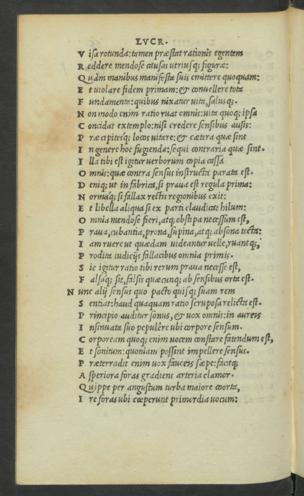 LVCR.
V isa rotunda: tamen præstat rationis egentem
R eddere mendose causas utriusq; figuræ:
Q uàm manibus manifesta suis emittere quoquam:
E t uiolare fidem primam: & conuellere tota
F undamenta: quibus nixatur uita, salusq;.
N on modo enim ratio ruat omnis: uita quoq; ipsa
C oncidat extemplo: nisi credere sensibus ausis:
P ræcipitesq; locos uitare: & cætera quæ sint
I n genere hoc fugienda: sequi contraria quæ sint.
I lla tibi est igitur uerborum copia cassa
O mnis: quæ contra sensus instructa parata est.
D eniq; ut in fabrica, si praua est regula prima:
N ormaq; si fallax rectis regionibus exit:
E t libella aliqua si ex parti claudicat hilum:
O mnia mendose fieri, atq; obstipa necessum est,
P raua, cubantia, prona, supina, atq; absona tecta:
I am ruere ut quædam uideantur uelle, ruantq;,
P rodita iudiciis fallacibus omnia primis.
S ic igitur ratio tibi rerum praua necesse est,
F alsaq; sit, falsis quæcunq; ab sensibus orta est.
N unc alij sensus quo pacto quisq; suam rem
S entiat: haud quaquam ratio scruposa relicta est.
P rincipio auditur sonus, & uox omnis: in aureis
I nsinuata suo pepulere ubi corpore sensum.
C orpoream quoq; enim uocem constare fatendum est,
E t sonitum: quoniam possint impellere sensus.
P ræterradit enim uox fauces sæpe: facitq;
A speriora foras gradiens arteria clamor.
Q uippe per angustum turba maiore coorta,
I re foras ubi cœperunt primordia uocum: